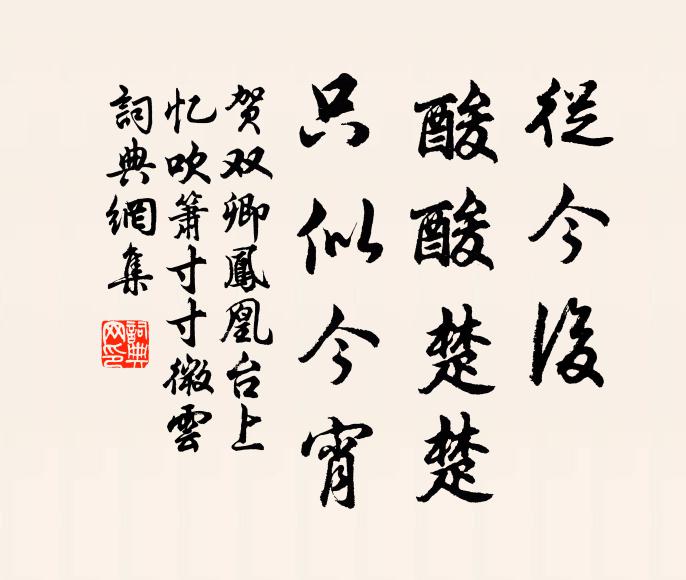 從今後
酸酸楚楚
只似今宵
贺双卿鳳凰台上
忆吹簫寸寸微雲
詞典網集
詞典网印